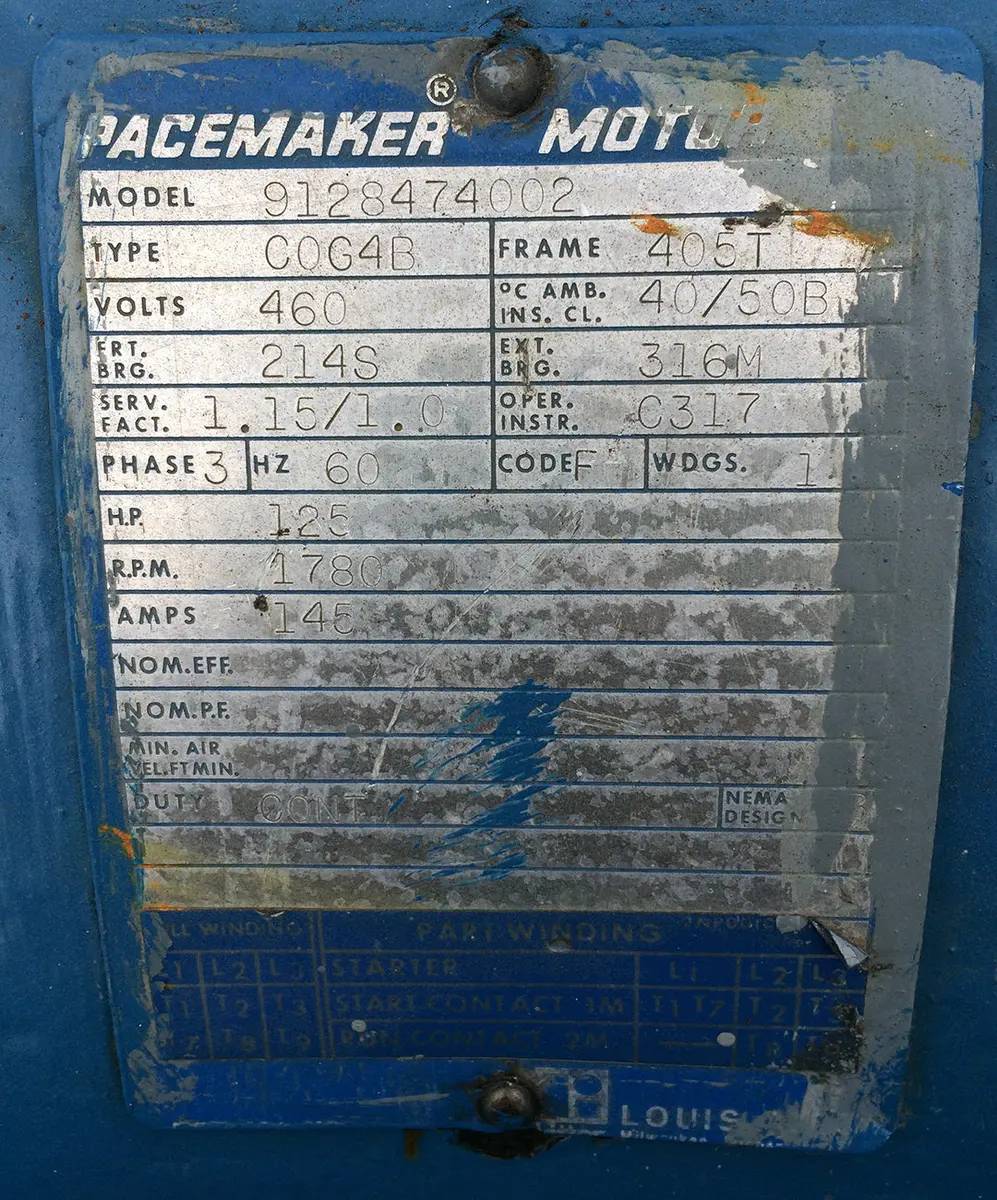 PACEMAKER® MOTOR
MODEL 9128474002
TYPE COG4B FRAME 405T
VOLTS 460 °C AMB. INS. CL. 40/50B
FRT. BRG. 214S EXT. BRG. 316M
SERV. FACT. 1.15/1.0 OPER. INSTR. C317
PHASE 3 HZ 60 CODE F WDGS. 1
H.P. 125
R.P.M. 1780
AMPS 145
NOM.EFF.
NOM.P.F.
MIN. AIR VEL.FTMIN.
DUTY CONT NEMA DESIGN B
WINDING PART WINDING
L1 L2 L3 STARTER L1 L2 L3
T1 T2 T3 START CONTACT 1M T1 T7 T2
T7 T8 T9 RUN CONTACT 2M T8
LOUIS